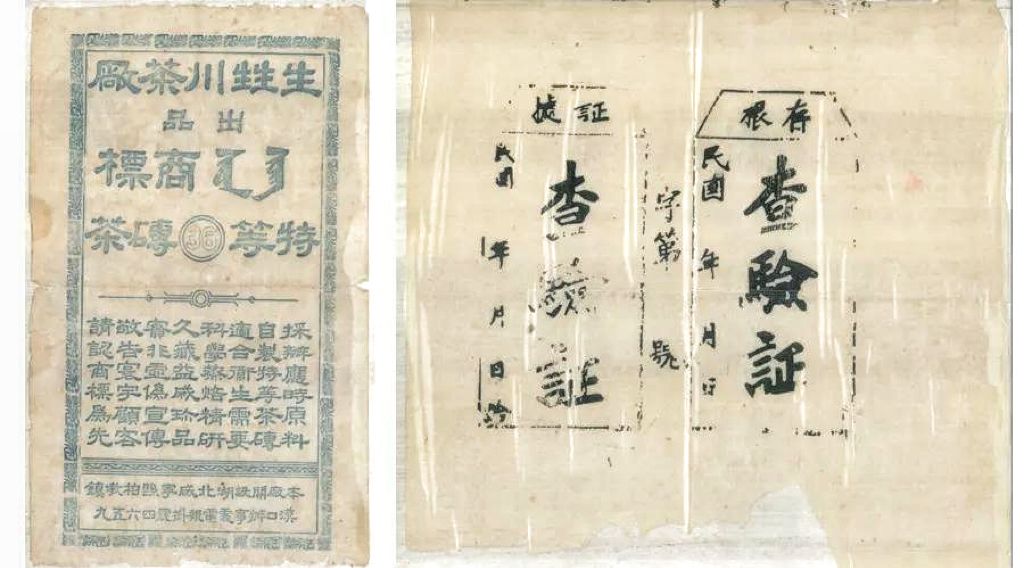 生甡川茶廠
出品
商標
特等36磚茶
採辦應時原料
自製特等茶磚
適合衛生需要
科學藥焙精研
久藏益成珍品
審非虛偽宣傳
敬告寰宇顧客
請認商標為先
本廠開設湖北咸寧縣柏墩鎮
漢口辦事處電報掛號四六五九
存根
查驗証
民國 年 月 日
字第 號
証據
查驗証
民國 年 月 日給